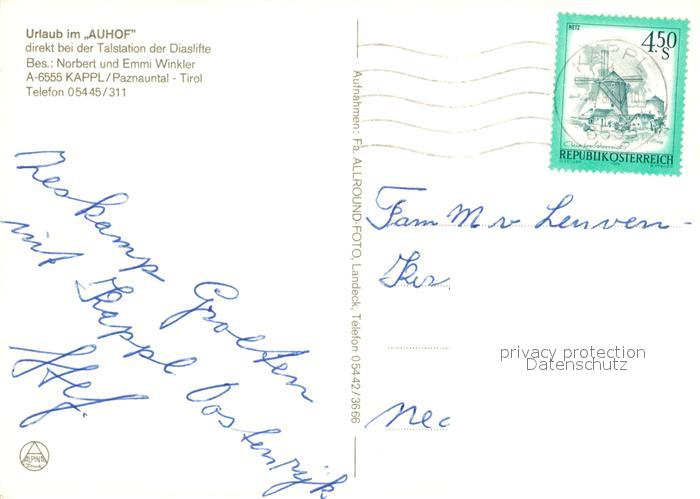 Urlaub im „AUHOF"
direkt bei der Talstation der Diaslifte
Bes.: Norbert und Emmi Winkler
A-6555 KAPPL/Paznauntal - Tirol
Telefon 05445/311
Groeten
uit Kappl Oostenrijk
Stef.
ALPINA
Aufnahmen: Fa. ALLROUND-FOTO, Landeck, Telefon 05442/3666
RETZ
4.50
S
KAPPL
REPUBLIK ÖSTERREICH
Fam M v Leuven-
Ned
privacy protection
Datenschutz